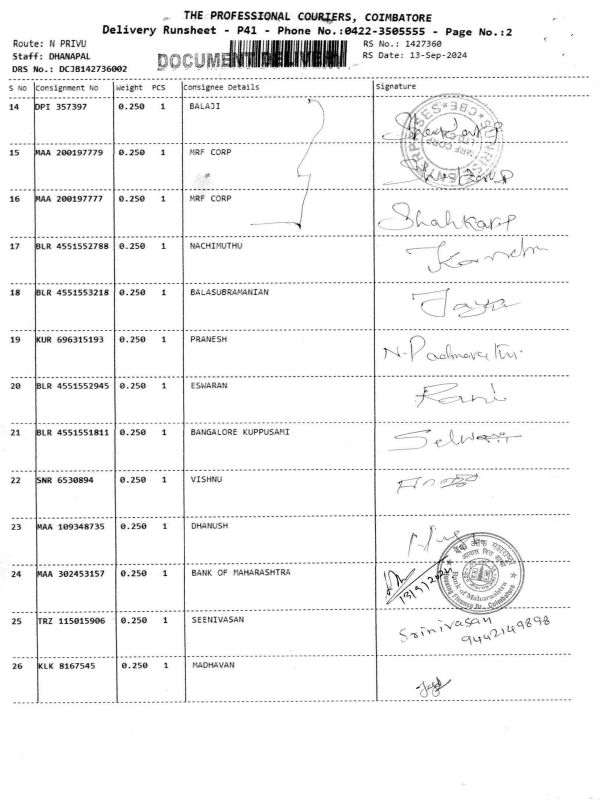 THE PROFESSIONAL COURIERS, COIMBATORE
Delivery Runsheet - P41 - Phone No.:0422-3505555 - Page No.:2
Route: N PRIVU
RS No.: 1427360
Staff: DHANAPAL
DOCUMENT DELIVERY
RS Date: 13-Sep-2024
DRS No.: DCJB142736002
S No Consignment No Weight PCS Consignee Details Signature
14 DPI 357397 0.250 1 BALAJI
15 MAA 200197779 0.250 1 MRF CORP
16 MAA 200197777 0.250 1 MRF CORP
17 BLR 4551552788 0.250 1 NACHIMUTHU
18 BLR 4551553218 0.250 1 BALASUBRAMANIAN Jaya
19 KUR 696315193 0.250 1 PRANESH
20 BLR 4551552945 0.250 1 ESWARAN Rani
21 BLR 4551551811 0.250 1 BANGALORE KUPPUSAMI
22 SNR 6530894 0.250 1 VISHNU
23 MAA 109348735 0.250 1 DHANUSH
24 MAA 302453157 0.250 1 BANK OF MAHARASHTRA
Bank of Maharashtra
25 TRZ 115015906 0.250 1 SEENIVASAN Srinivasan
9442149898
26 KLK 8167545 0.250 1 MADHAVAN